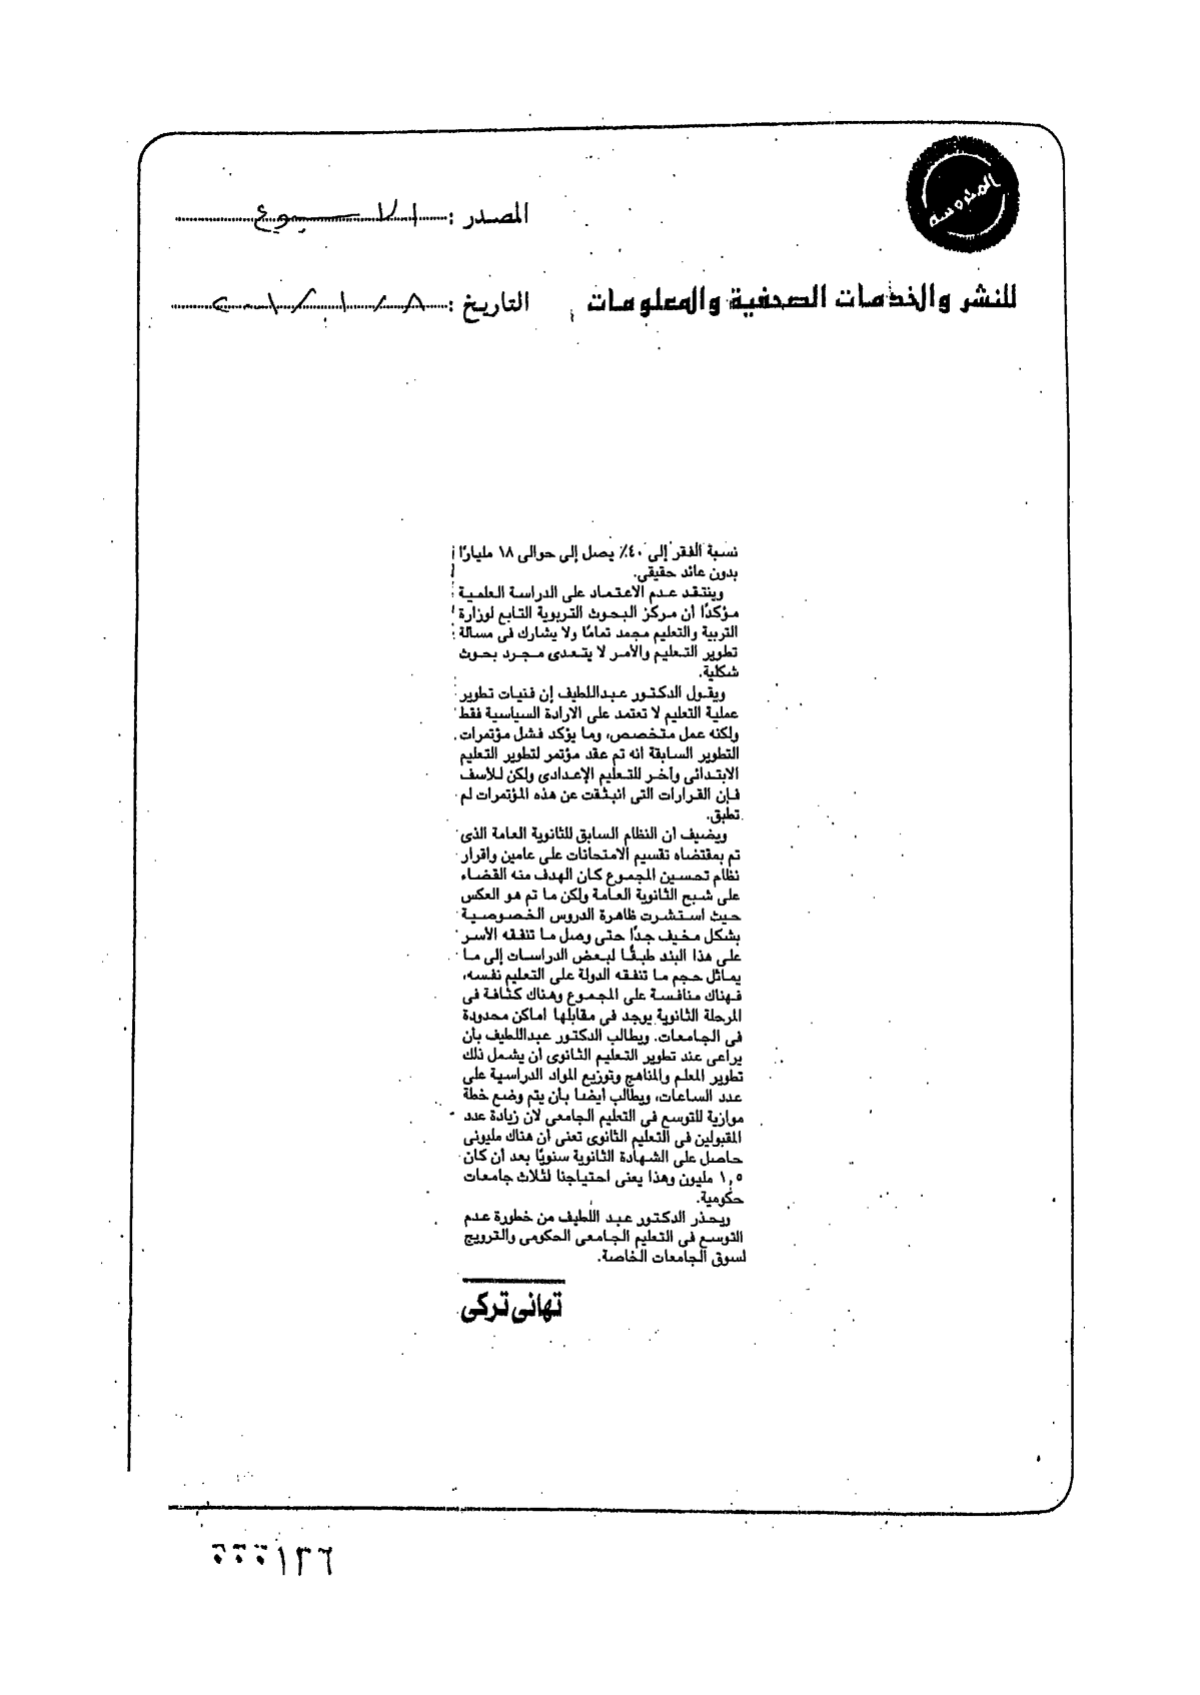 المحروسة
المصدر : الأسبوع
للنشر والخدمات الصحفية والمعلومات
التاريخ :
نسبة الفقر إلى ٤٠٪ يصل إلى حوالى ١٨ مليارًا
بدون عائد حقيقى.
وينتقد عدم الاعتماد على الدراسة العلمية
مؤكدًا أن مركز البحوث التربوية التابع لوزارة
التربية والتعليم مجمد تمامًا ولا يشارك فى مسألة
تطوير التعليم والأمر لا يتعدى مجرد بحوث
شكلية.
ويقول الدكتور عبداللطيف إن فنيات تطوير
عملية التعليم لا تعتمد على الارادة السياسية فقط
ولكنه عمل متخصص، وما يؤكد فشل مؤتمرات
التطوير السابقة انه تم عقد مؤتمر لتطوير التعليم
الابتدائى وآخر للتعليم الإعدادى ولكن للأسف
فإن القرارات التى انبثقت عن هذه المؤتمرات لم
تطبق.
ويضيف أن النظام السابق للثانوية العامة الذى
تم بمقتضاه تقسيم الامتحانات على عامين واقرار
نظام تحسين المجموع كان الهدف منه القضاء
على شبح الثانوية العامة ولكن ما تم هو العكس
حيث استشرت ظاهرة الدروس الخصوصية
بشكل مخيف جدًا حتى وصل ما تنفقه الأسر
على هذا البند طبقًا لبعض الدراسات إلى ما
يماثل حجم ما تنفقه الدولة على التعليم نفسه،
فهناك منافسة على المجموع وهناك كثافة فى
المرحلة الثانوية يوجد فى مقابلها اماكن محدودة
فى الجامعات. ويطالب الدكتور عبداللطيف بأن
يراعى عند تطوير التعليم الثانوى أن يشمل ذلك
تطوير المعلم والمناهج وتوزيع المواد الدراسية على
عدد الساعات، ويطالب أيضا بأن يتم وضع خطة
موازية للتوسع فى التعليم الجامعى لان زيادة عدد
المقبولين فى التعليم الثانوى تعنى أن هناك مليونى
حاصل على الشهادة الثانوية سنويًا بعد أن كان
١,٥ مليون وهذا يعنى احتياجنا لثلاث جامعات
حكومية.
ويحذر الدكتور عبد اللطيف من خطورة عدم
التوسع فى التعليم الجامعى الحكومى والترويج
لسوق الجامعات الخاصة.
تهانى تركى